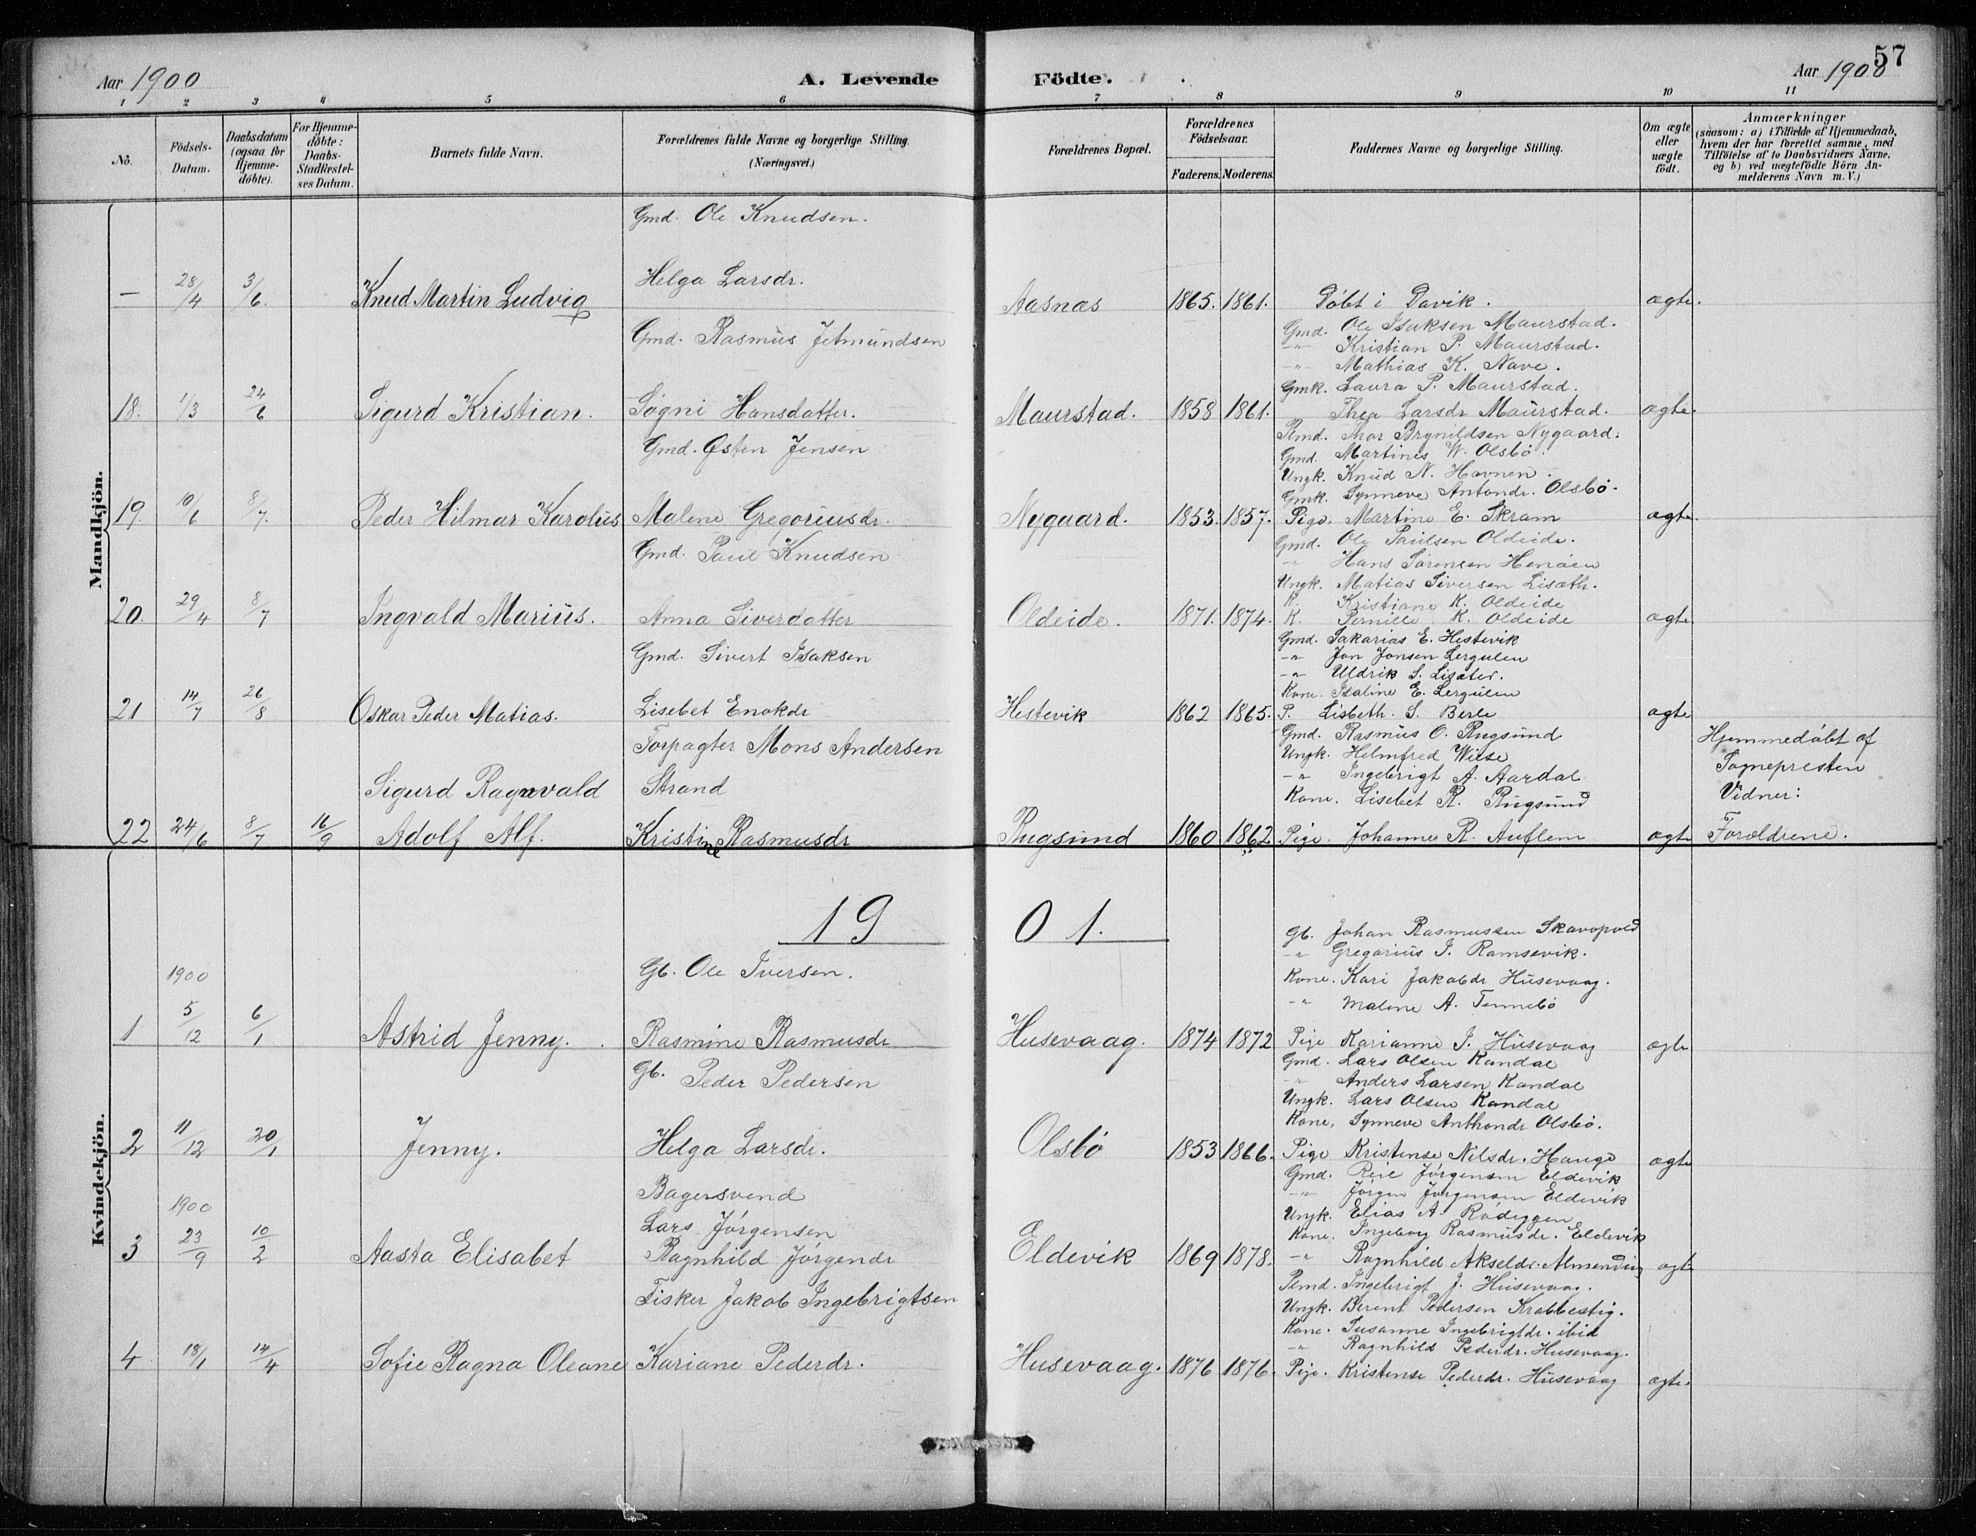 57
Aar 1900 A. Levende Födte. Aar 1900
1 2 3 4 5 6 7 8 9 10 11
No.
Födsels-
Datum.
Daabsdatum
(ogsaa för
Hjemme-
döbte).
For Hjemme-
døbte:
Daabs-
Stadfæstel-
ses Datum.
Barnets fulde Navn.
Forældrenes fulde Navne og borgerlige Stilling.
(Næringsvei.)
Forældrenes Bopæl.
Forældrenes
Födselsaar.
Faderens. Moderens.
Faddernes Navne og borgerlige Stilling.
Om ægte
eller
uægte
födt.
Anmærkninger
(saasom: a) i Tilfælde af Hjemmedaab,
hvem der har forrettet samme, med
Tilföielse af to Daabsvidners Navne,
og b) ved uægtefödte Börn An-
melderens Navn m. V.)
Mandkjön.
Gmd. Ole Knudsen.
— 28/4 3/6. Knud Martin Ludvig Helga Larsdr. Aasnæs 1865. 1861. Döbt i Davik. ægte.
Gmd. Rasmus Jetmundsen
Gmd. Ole Isaksen Maurstad.
-"- Kristian P. Maurstad.
-"- Mathias K. Nave.
Gmk. Laura P. Maurstad.
18. 1/3 24/6 Sigurd Kristian. Søgni Hansdatter. Maurstad. 1858 1861. Thea Larsdr Maurstad. ægte.
Gmd. Østen Jensen
Pmd. Thor Brynildsen Nygaard.
Gmd. Martines W. Olsbö.
Ungk. Knud N. Havnen.
Gmk. Synneve Antondr. Olsbö.
19. 10/6 8/7. Peder Hilmar Karolius Malene Gregoriusdr. Nygaard. 1853. 1857. Pige. Martine E. Skram ægte.
Gmd. Paul Knudsen
Gmd. Ole Paulsen Oldeide.
" Hans Sørensen Henöen
Ungk. Matias Siversen Lisæth.
K. Kristiane K. Oldeide
20. 29/4 8/7 Ingvald Marius. Anna Siverdatter Oldeide. 1871. 1874. K. Pernille K. Oldeide ægte.
Gmd. Sivert Isaksen
Gmd. Sakarias E. Hestevik
-"- Jon Jonsen Lergulen
-"- Uldrik S. Lisæter.
Kone. Isaline E. Lergulen
21 14/7 26/8 Oskar Peder Matias. Lisebet Enokdr Hestevik 1862 1865. P. Lisbeth. S. Berle ægte
Forpagter Mons Andersen
Strand
Gmd. Rasmus O. Rugsund
Ungk. Helmfred Wiese
-"- Ingebrigt A. Aardal
Kone. Lisebet R. Rugsund
Hjemmedöbt af
Sognepresten
Vidner:
Forældrene.
Sigurd Ragnvald
22 24/6 8/7 16/9 Adolf Alf. Kristine Rasmusdr Rugsund 1860 1862 Pige. Johanne R. Auflem ægte
1901.
Kvindekjön.
Gb. Ole Iversen.
Gb. Johan Rasmussen
-"- Gregarius I. Ramsevik.
Kone. Kari Jakobdr Husevaag.
-"- Malene A. Tennebö
1900
1 5/12 6/1 Astrid Jenny. Rasmine Rasmusdr Husevaag. 1874 1872 Pige Karianne J. Husevaag ægte
Gb. Peder Pedersen
Gmd. Lars Olsen Kandal
-"- Anders Larsen Kandal
Ungk. Lars Olsen Kandal
Kone, Synneve Anthondr Olsbö.
2 11/12 20/1 Jenny. Helga Larsdr. Olsbö 1853 1866. Pige Kristense Nilsdr. Hauge ægte
Bagersvend
Lars Jörgensen
Gmd. Jörgensen Eldevik
-"- Jörgen Jörgensen Eldevik
Ungk. Elias A. Rödeggen
Kone. Ingeborg Rasmusdr. Eldevik
1900
3 23/9 10/2 Aasta Elisabet Ragnhild Jörgendr Eldevik 1869 1878. -"- Ragnhild Akseldr. Almending ægte
Fisker Jakob Ingebrigtsen
Pmd. Ingebrigt J. Husevaag.
Ungk. Berent Pedersen Krabbestig.
Kone. Susanne Ingebrigtdr. ibid
-"- Ragnhild Pederdr. Husevaag.
4 18/1 14/4 Sofie Ragna Oleane Kariane Pederdr. Husevaag. 1876 1876. Pige. Kristense Pederdr. Husevaag ægte.